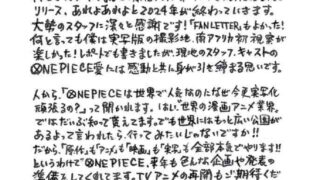 リリース、あれよあれよと2024年が終わっていきます。
大勢のスタッフに深々と感謝です!「FAN LETTER」もよかった!
何と言っても僕は実写版の撮影地、南アフリカ初視察が
楽しかった!レポートでも書きましたが、現地のスタッフ、キャストの
ONE PIECE愛には感動と共に身が引き締まる思いです。
人から、「ONE PIECEは世界で人気なのになぜ今更実写化
頑張るの?」って聞かれます。はい、世界の漫画アニメ業界。
ではだいぶ知って貰えてます。でも世界にはもっと広い公園が
あるよって言われたら、行ってみたいじゃないですか!!
だから、「原作」も「アニメ」も「映画」も「実写」も全部本気でやります!!
というわけでONE PIECE、来年も色んな企画や発表の
準備をしてくれてます。TVアニメの再開もご期待くだ